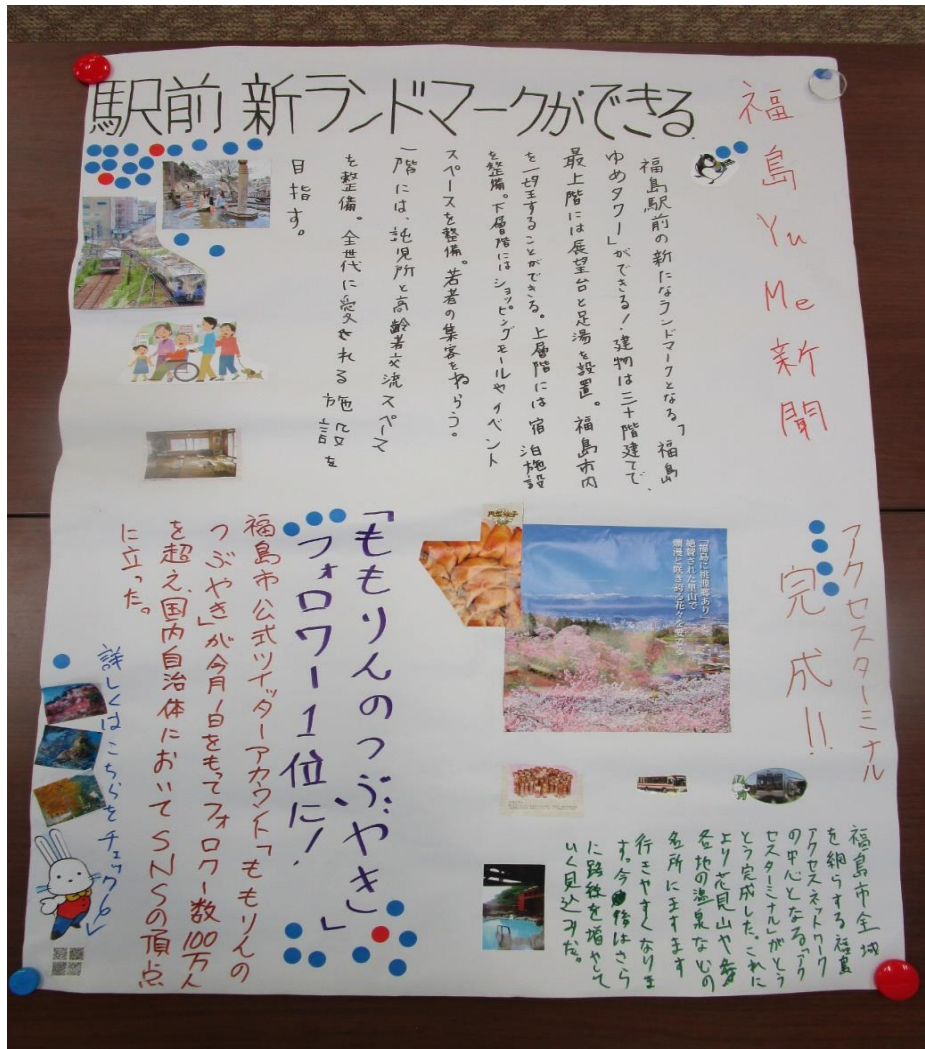 福島YuMe新聞
駅前 新ランドマークができる
福島駅前の新たなランドマークとなる「福島
ゆめタワー」ができる!建物は三十階建てで、
最上階には展望台と足湯を設置。福島市内
を一望することができる。上層階には宿泊施設
を整備。下層階にはショッピングモールやイベント
スペースを整備。若者の集客をねらう。
一階には、託児所と高齢者交流スペース
を整備。全世代に愛される施設を
目指す。
アクセスターミナル
完成!!
「福島に桃源郷あり」と
絶賛された里山で
爛漫と咲き誇る花々を愛でる
福島市全域
を網らする福島
アクセスネットワーク
の中心となる「アク
セスターミナル」がとう
とう完成した。これに
より花見山や
各地の温泉などの
名所にますます
行きやすくなりま
す。今後はさら
に路線を増やして
いく見込みだ。
「ももりんのつぶやき」
フォロワー1位に!
福島市公式ツイッターアカウント「ももりんの
つぶやき」が今月1日をもってフォロワー数100万人
を超え、国内自治体においてSNSの頂点
に立った。
詳しくはこちらをチェック